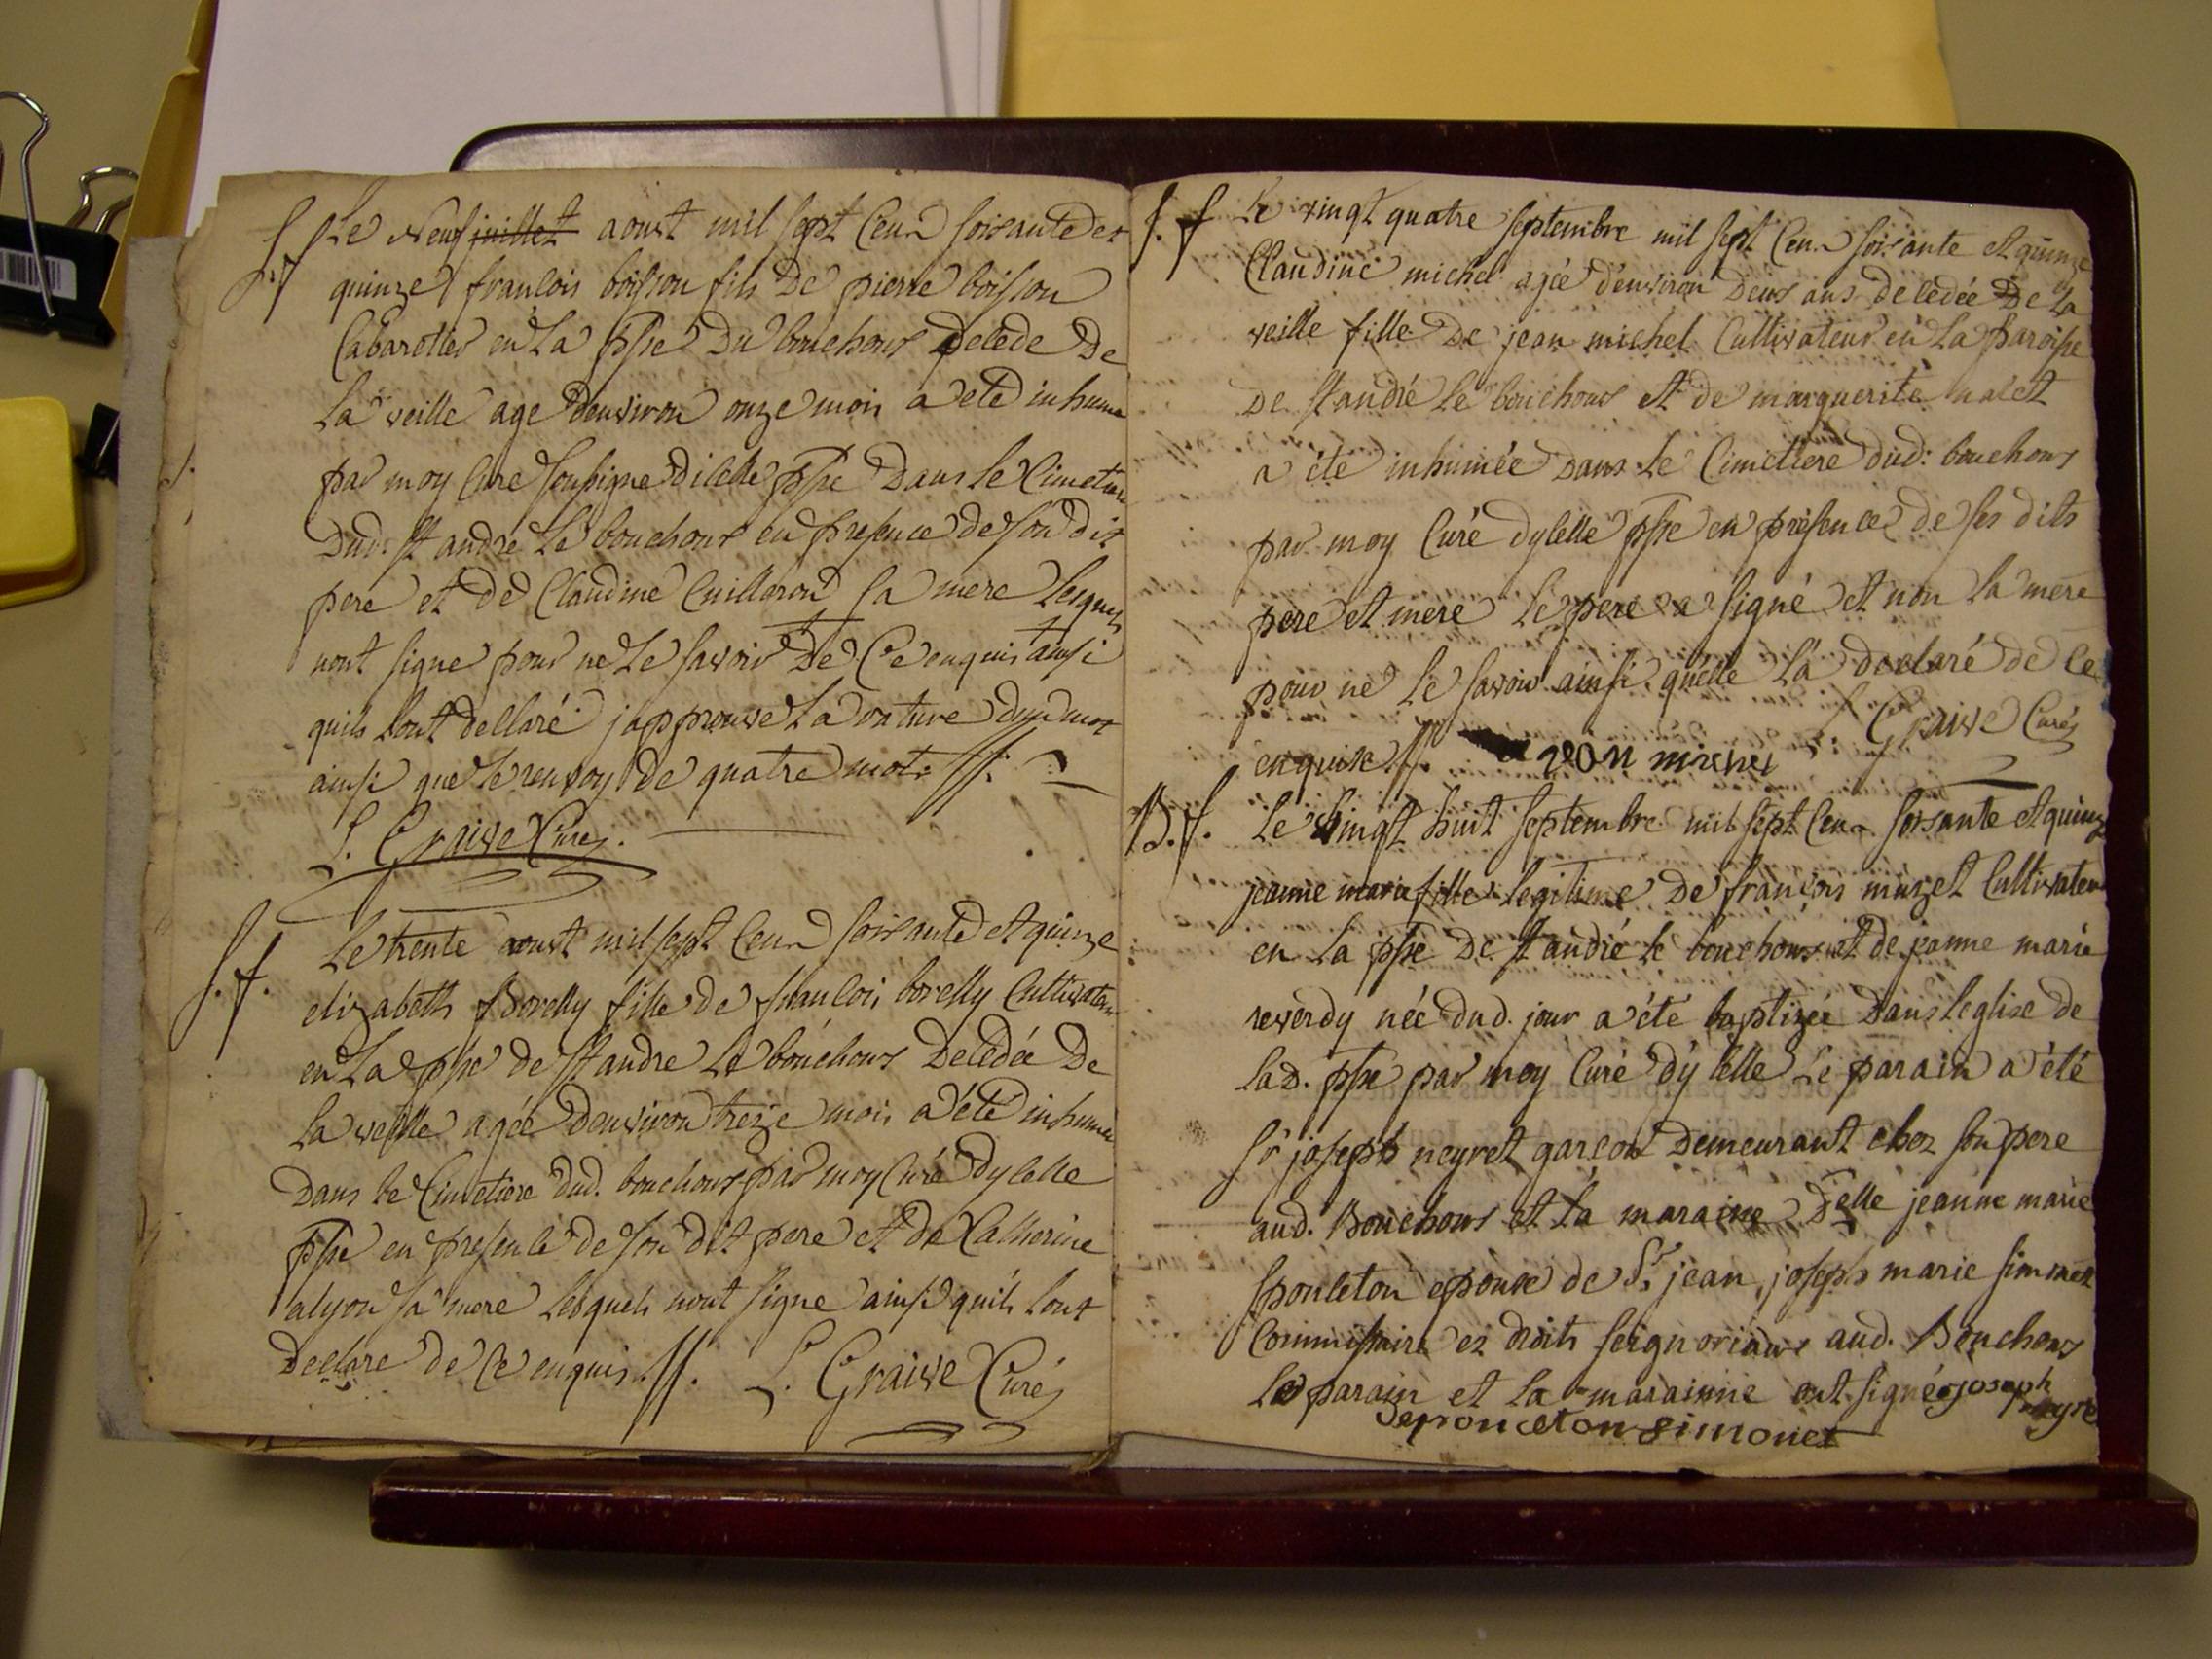 Le Neuf juillet aoust mil sept Cent soixante et
quinze francois boisson fils De pierre boisson
Cabarotier en La ppsse Du bouchous decede De
La veille age denviron onze mois a ete inhume
par moy Cure soussigne dicelle ppsse Dans le Cimetiere
Dud. st andre Le bouchous en presence de son dit
pere et de Claudine Cuilleron sa mere Lesquels
nont signe pour ne Le savoir De Ce enquis ainsi
quils Lont dellaré japprouve La rature dun mot
ainsi que le renvoy de quatre mots //.
L. Graive Curé.
s. f.
Le trente aoust mil sept Cent soixante et quinze
elizabeth Borelly fille de francois borelly Cultivateur
en La ppsse de st andre Le bouchous Decedée De
La veille agée denviron treize mois a été inhumée
Dans Le Cimetiere dud. bouchous par moy Curé dycelle
ppsse en presence de son dit pere et de Catherine
alyon sa mere Lesquels nont signe ainsi quils Lont
Declare de Ce enquis //. L. Graive Curé
s. f.
Le vingt quatre septembre mil sept Cent soixante et quinze
Claudine michel agée d'environ Deux ans decedée De La
veille fille De jean michel Cultivateur en La paroisse
De st andré Le bouchous et de marguerite
a été inhumée Dans Le Cimetiere dud. bouchous
par moy Curé dycelle ppsse en presence de ses dits
pere et mere Le pere a signé et non La mere
pour ne Le savoir ainsi qu'elle L'a declaré de Ce
enquise //. michel Graive Curé
B. f.
Le Vingt huit septembre mil sept Cent soixante et quinze
jeanne marie fille legitime De françois muzet Cultivateur
en La ppsse De st andré le bouchous et de jeanne marie
reverdy née dud. jour a été baptizée Dans leglise de
Lad. ppsse par moy Curé dy celle Le parain a été
Sr joseph neyret garçon Demeurant chez son pere
aud. Bouchous et La maraine Delle jeanne marie
ponceton epouse de Sr jean joseph marie simonet
Commissaire ez droits seignoriaux aud. Bouchous
Le parain et La marainne ont signé joseph
neyret
deponceton simonet